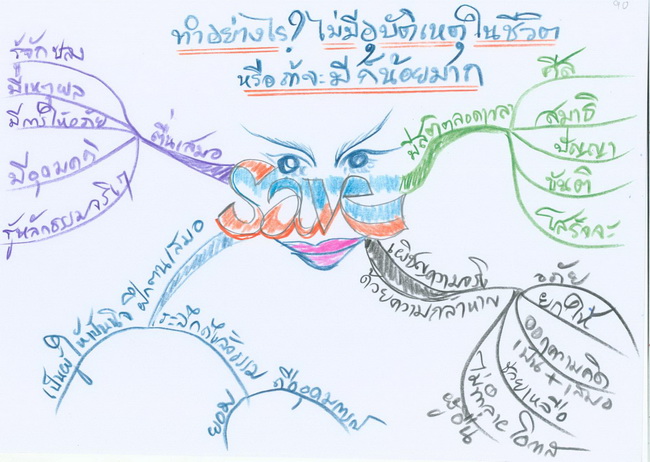 90
ทำอย่างไร? ไม่มีอุบัติเหตุในชีวิต
หรือถ้าจะมี ก็น้อยมาก
รู้จักชลง
มีเหตุผล
มีการให้อภัย
มีอุดมคติ
ตื่นเสมอ
มีสติตลอดเวลา
ศีล
สมาธิ
ปัญญา
ขันติ
โสรัจจะ
Save
ฝึกตนเสมอ
เป็นผู้ให้เป็นนิจ
ระลึกถึงสัจธรรม
ยอม
ถืออุดมการณ์
เผชิญความจริง
ด้วยความกล้าหาญ
อภัย
ยกให้
ออกความคิด
เป็น + เสมอ
ช่วยเหลือ
ไม่ทำลายโอกาส
ผู้อื่น